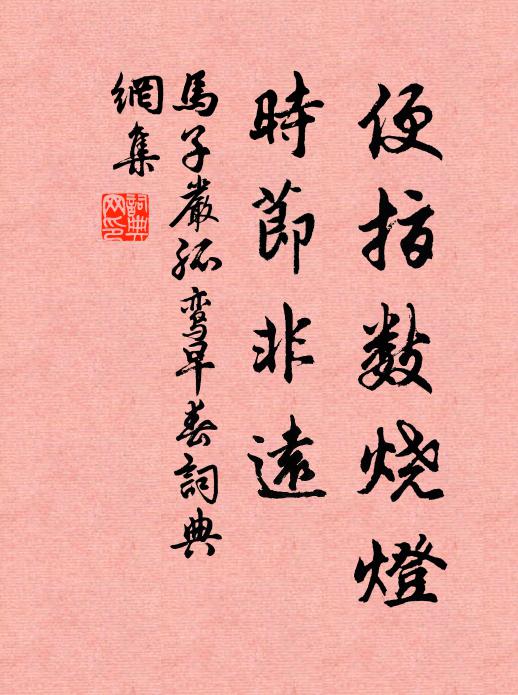 便指数烧燈
時節非遠
馬子嚴孤鸾早春詞典
網集
詞典網印